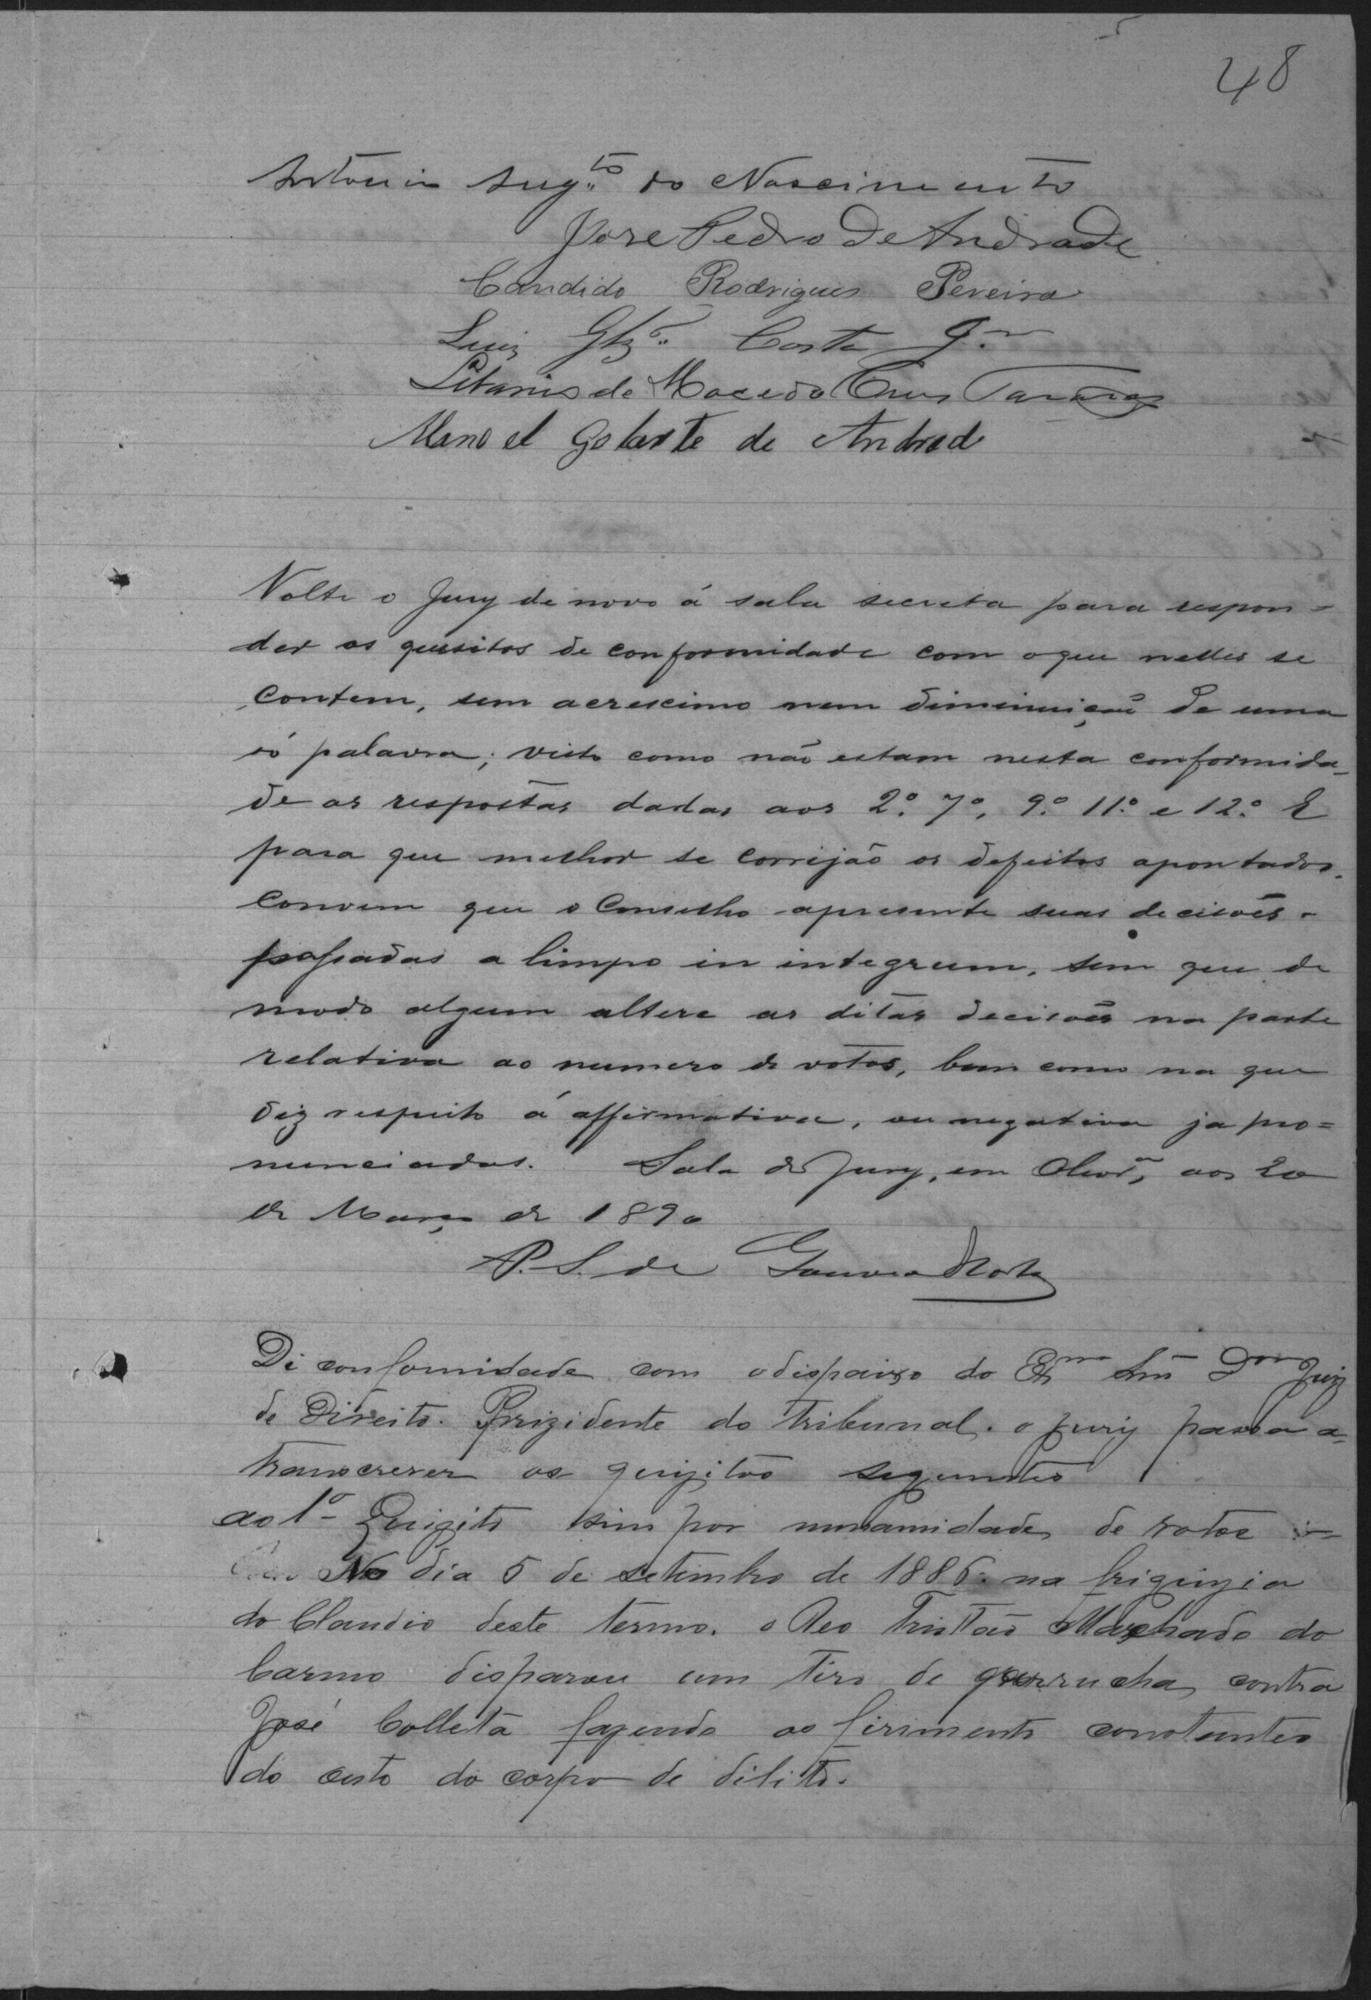 48
Antonio Aug.to do Nascimento
Jose Pedro de Andrade
Candido Rodrigues Pereira
Luiz Glz. Costa J.or
de Macedo Cruz
Manoel Golarte de Andrade
Volte o Jury de novo á sala secreta para respon=
der os quesitos de conformidade com o que nelles se
contem, sem acrescimo nem diminuição de uma
só palavra; visto como não estam nesta conformida-
de as respostas dadas aos 2.º 7º, 9.º 11.º e 12.º E
para que melhor se corrijão os defeitos apontados.
Convem que o Conselho apresente suas decisões
passadas a limpo in integrum, sem que de
modo algum altere as ditas decisões na parte
relativa ao numero de votos, bem como na que
diz respeito á affirmativa, ou negativa ja pro=
nunciadas. Sala do Jury, em Olivr.ª, aos 20
de Março de 1890
P. S. de Gouvea Horta
Di conformidade com o dispaixo do Ex.mo Snr. D.or Juiz
de Direito. Prizidente do tribunal. o jury passa a-
transcrever os quizitos seguentes
ao 1º Quizito sim por unnanimidade de votos
No dia 5 de setembro de 1886. na friguizia
do Claudio deste termo. o Reo Tristão Machado do
Carmo disparou um tiro de garrucha contra
José Colleta fazendo os firimento constantes
do auto do corpo de dilito.